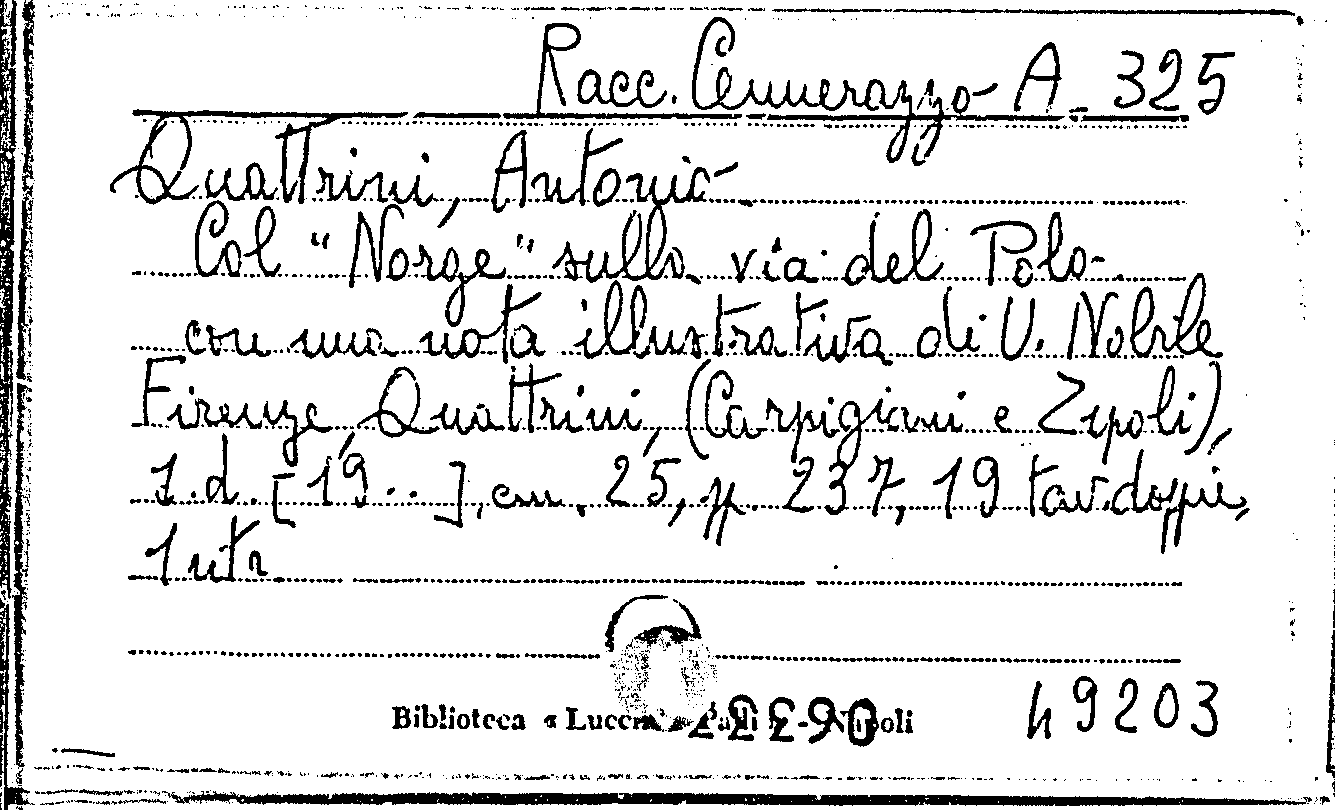 Racc. Cennerazzo A_325
Quattrini, Antonio
Col "Norge" sulla via del Polo
con una nota illustrativa di U. Nobile
Firenze, Quattrini, (Carpigiani e Zipoli),
s.d. [19..], cm. 25, pp. 237, 19 tav. doppie,
1 utr
Biblioteca « Lucchesi Palli » - Napoli
49203